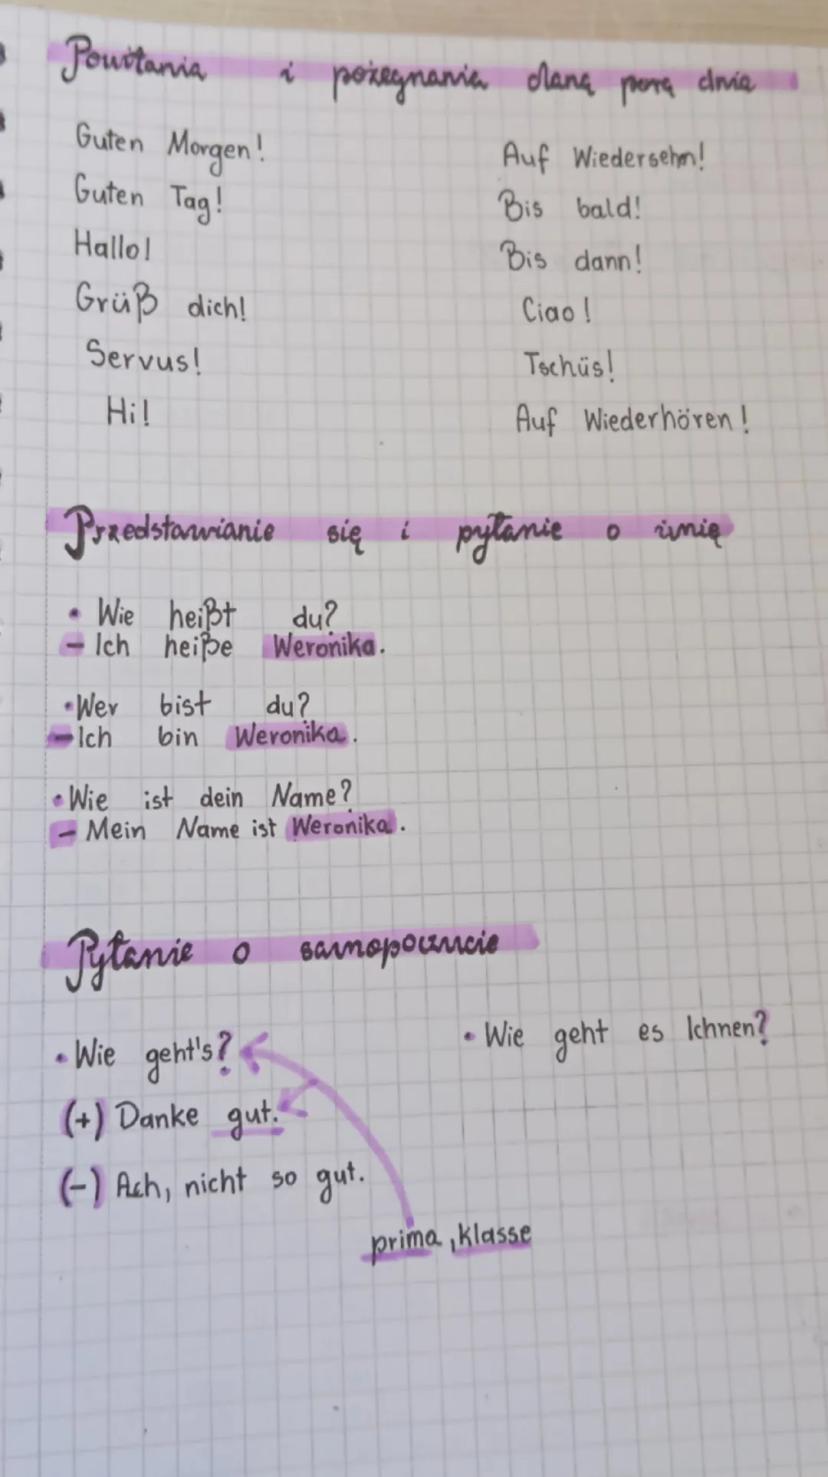 Powitania i pożegnania daną porą dnia
Guten Morgen!
Guten Tag!
Hallo!
Grüß dich!
Servus!
Hi!
Auf Wiedersehn!
Bis bald!
Bis dann!
Ciao!
Tschüs!
Auf Wiederhören!
Przedstawianie się i pytanie o imię
• Wie heißt du?
– Ich heiße Weronika.
• Wer bist du?
– Ich bin Weronika.
• Wie ist dein Name?
– Mein Name ist Weronika.
Pytanie o samopoczucie
• Wie geht's?
(+) Danke gut.
(-) Ach, nicht so gut.
prima, klasse
• Wie geht es Ichnen?